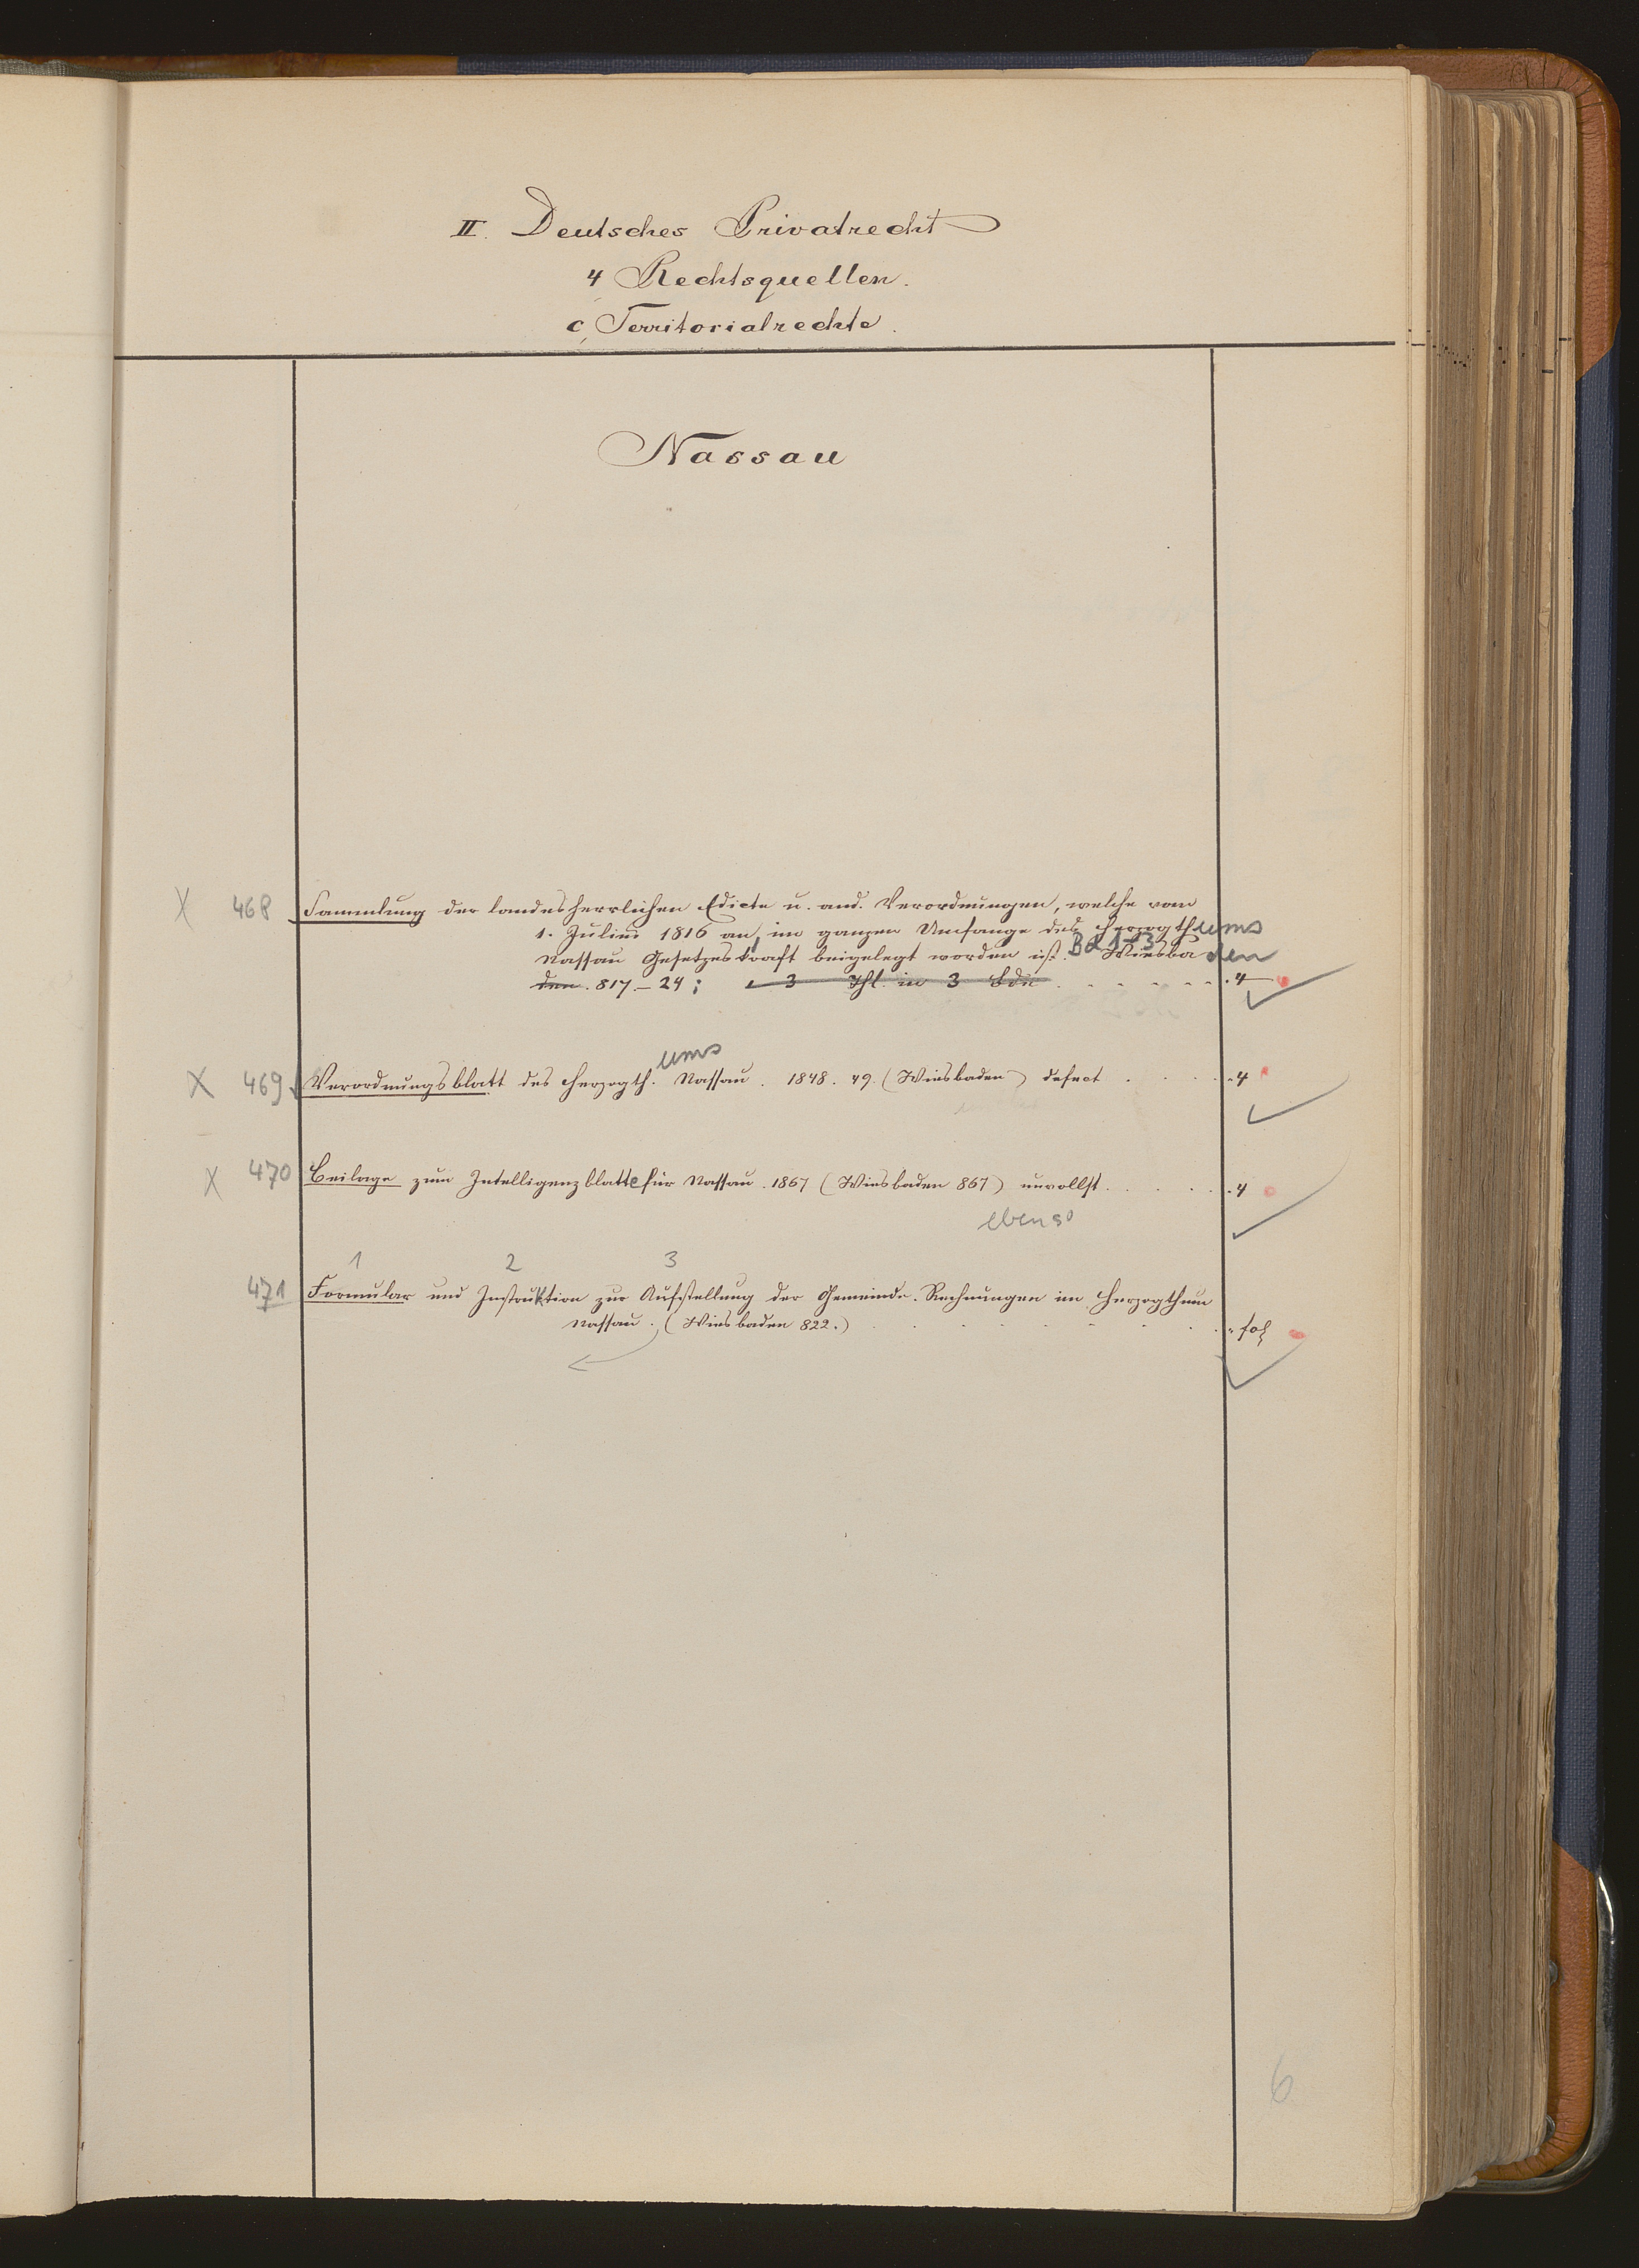 II. Deutsches Privatrecht
4 Rechtsquellen.
c, Territorialrechte.
Nassau
X 468 Sammlung der landesherrlichen Edicte u. and. Verordnungen, welche vom
1. Julius 1816 an, im ganzen Umfange des Herzogthums
Nassau Gesetzeskraft beigelegt worden ist. Bd 1-3 Wiesbaden
den. 817 – 24; 3 Thl. in 3 Bde . . . . . . 4
ums
X 469 Verordnungsblatt des Herzogth. Nassau. 1848. 49. (Wiesbaden) defect . . . . . 4
X 470 Beilage zum Intelligenzblatte für Nassau. 1867 (Wiesbaden 867) unvollst. . . . . . 4
ebenso
1 2 3
471 Formular und Instruktion zur Aufstellung der Gemeinde-Rechnungen im Herzogthum
Nassau. (Wiesbaden 822.) . . . . . . . . fol
6